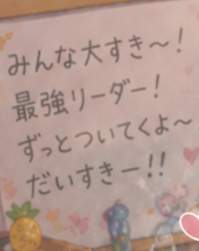 みんな大すき〜！
最強リーダー！
ずっとついてくよ〜
だいすきー!!